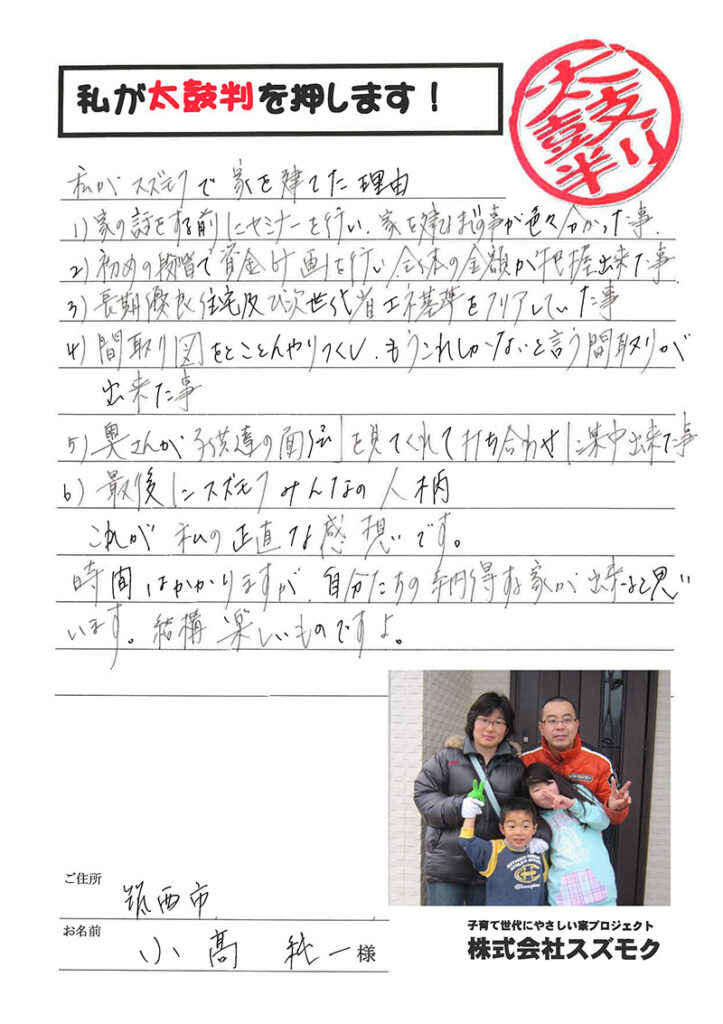 私が太鼓判を押します！
太鼓判
私がスズモクで家を建てた理由
1)家の話をする前にセミナーを行い、家を建てるまでの事が色々分かった事.
2)初めの段階で資金計画を行い全体の金額が把握出来た事
3)長期優良住宅及び次世代省エネ基準をクリアしていた事
4)間取り図をとことんやりつくし、もうこれしかないと言う間取りが
出来た事
5)奥さんが子供達の面倒を見てくれて打ち合わせに集中出来た事
6)最後にスズモクみんなの人柄
これが私の正直な感想です。
時間はかかりますが、自分たちの納得する家が出来ると思い
います。結構楽しいものですよ。
ご住所 筑西市
お名前 小髙 純一 様
子育て世代にやさしい家プロジェクト
株式会社スズモク